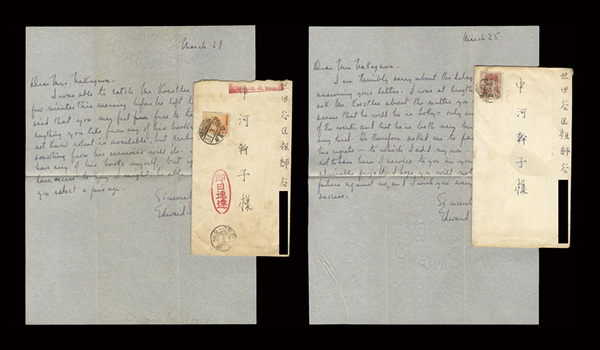 March 28
Dear Mrs. Nakagawa.
I was able to catch Mr. Koestler
few minutes this morning before he left
said that you may feel free to
anything you like from any of his books
not know what is available, but
something from his memoirs will do.
have any of his books myself, but
have access to any, I might be able
you select a passage.
Edward
世田谷区祖師谷
中河幹子様
即日速達
March 25
Dear Mrs Nakagawa.
I am terribly sorry about the delay
answering your letter. I was at length
ask Mr. Koestler about the matter you
seems that he will be in Tokyo only
of the week, and that he is both very
very tired. He therefore asked me to
his regrets – to which I add my own
not to have been of service to you in your
admirable project. I hope you will not
failure against me, and I wish you every
success.
Edward
世田谷区祖師谷
中河幹子様